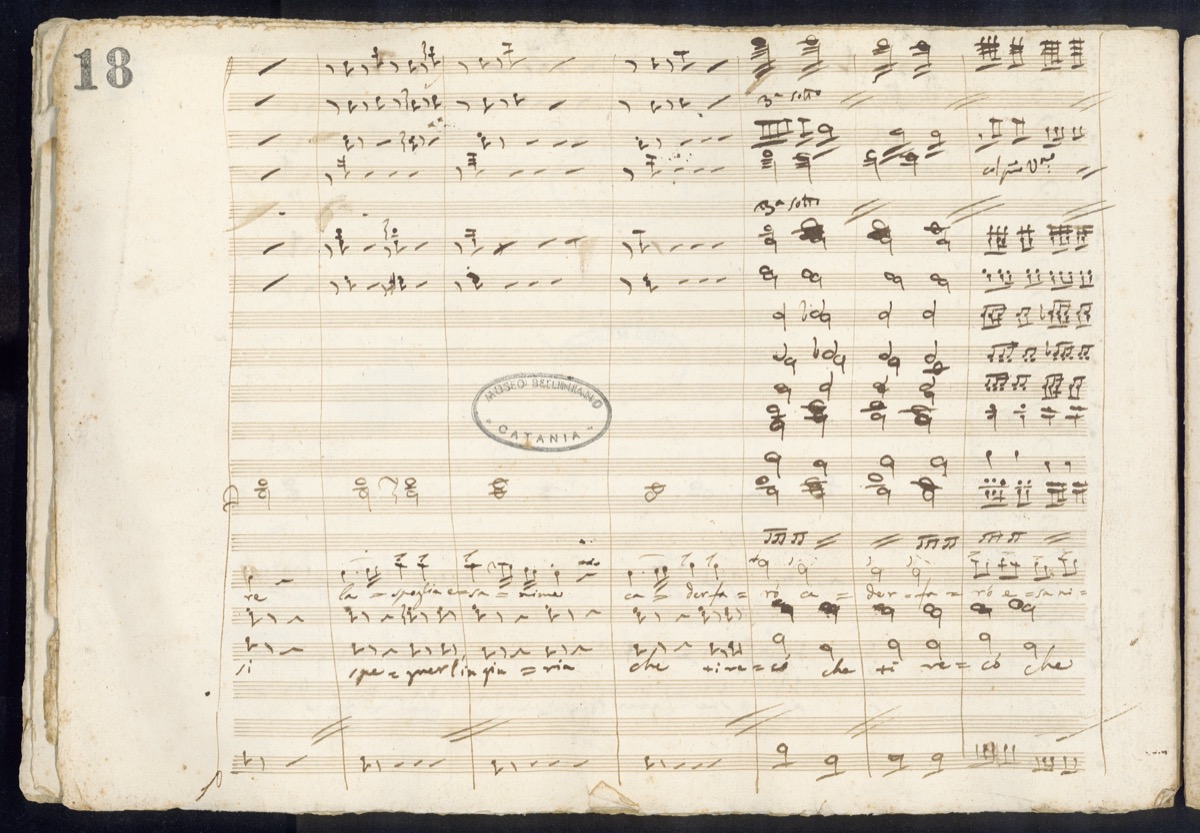 18
8ª sotto
col pmo Vno
8ª sotto
MUSEO BELLINIANO
CATANIA
re la = spoglia e = sa = nime ca = der fa = rò ca = der = fa = rò e = sani =
si spe = gner l'in giu = ria che ti re = cò che ti re = cò che